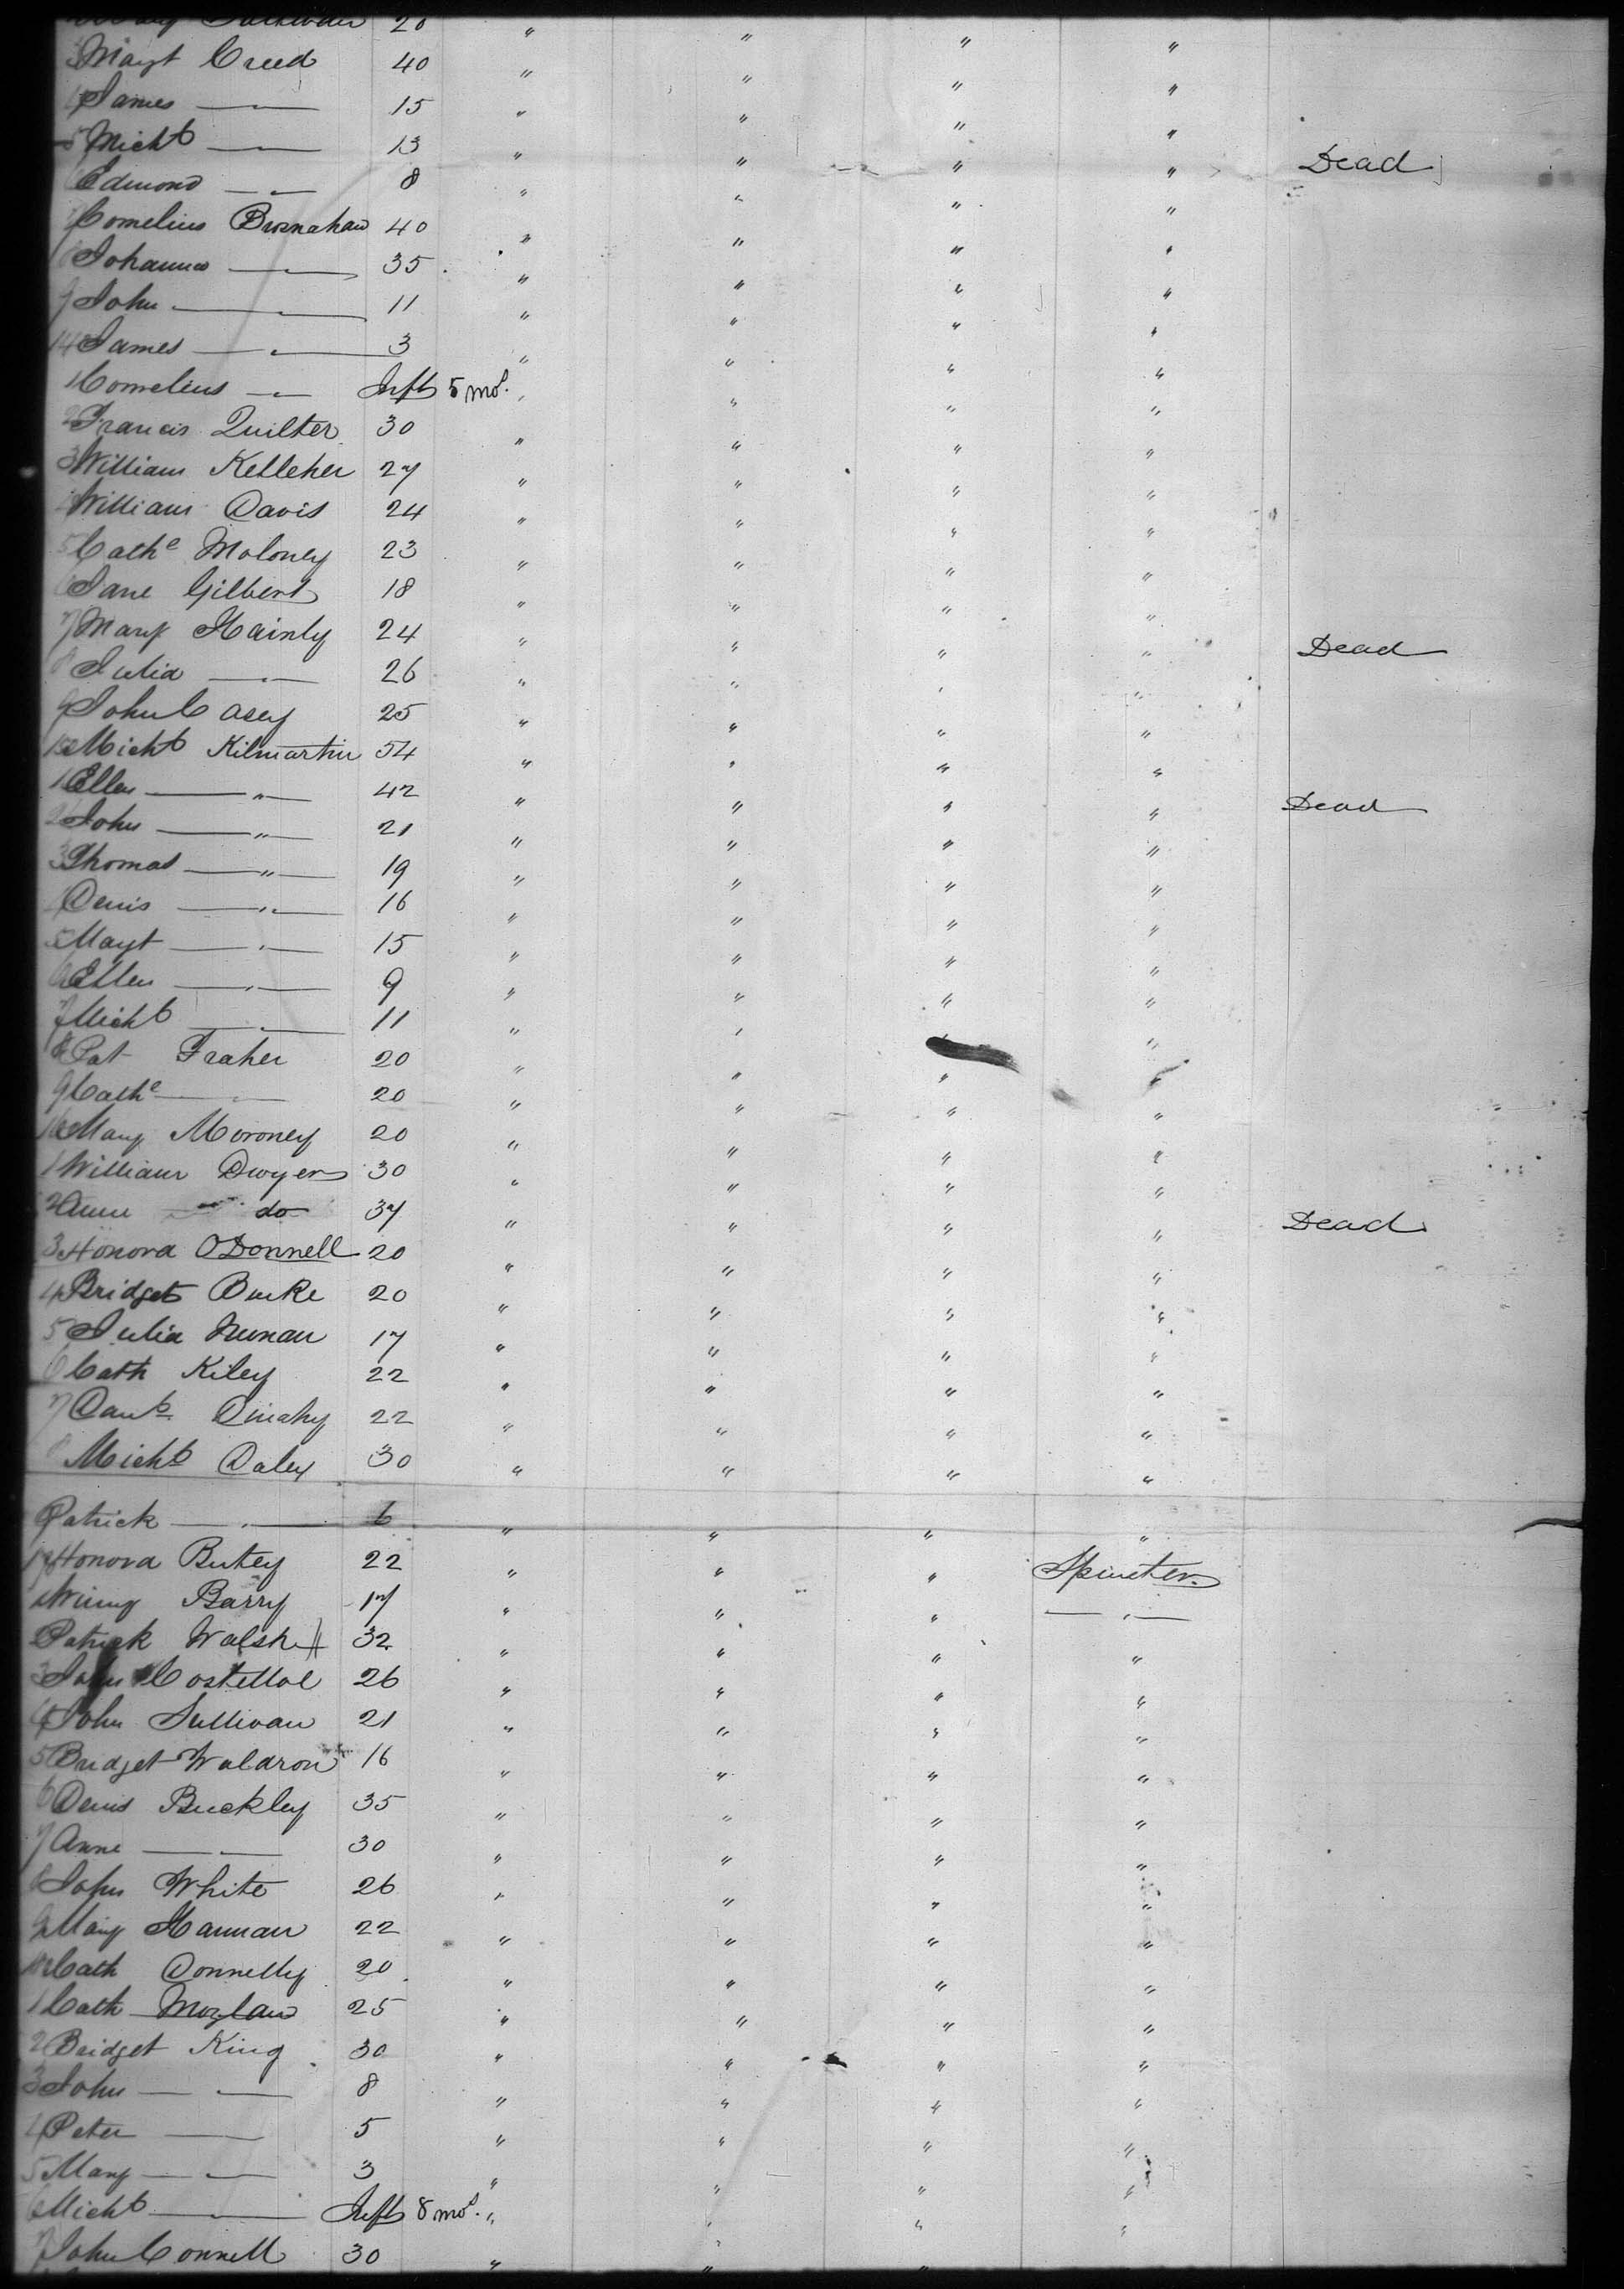 Sullivan 20 " " " "
3 Margt Creed 40 " " " "
4 James — " — 15 " " " "
5 Michl — " — 13 " " " " Dead
6 Edmond — " — 8 " " " "
7 Cornelius Brosnahan 40 " " " "
8 Johanna — " — 35 " " " "
9 John — " — 11 " " " "
14 James — " — 3 " " " "
1 Cornelius — " — Inft 5 mos. " " " "
2 Francis Quilter 30 " " " "
3 William Kelleher 27 " " " "
4 William Davis 24 " " " "
5 Cathe Moloney 23 " " " "
6 Jane Gilbert 18 " " " "
7 Mary Hainly 24 " " " " Dead
8 Julia — " — 26 " " " "
9 John Casey 25 " " " "
15 Michl Kilmartin 54 " " " "
1 Ellen — " — 42 " " " " Dead
2 John — " — 21 " " " "
3 Thomas — " — 19 " " " "
4 Denis — " — 16 " " " "
5 Magt — " — 15 " " " "
6 Ellen — " — 9 " " " "
7 Michl — " — 11 " " " "
8 Pat Fraher 20 " " " "
9 Cathe — " — 20 " " " "
16 Mary Moroney 20 " " " "
1 William Dwyer 30 " " " "
2 Anne do 37 " " " " Dead
3 Honora ODonnell 20 " " " "
4 Bridget Burke 20 " " " "
5 Julia Nunan 17 " " " "
6 Cath Kiley 22 " " " "
7 Danl 22 " " " "
8 Michl Daley 30 " " " "
9 Patrick — " — 6 " " " "
17 Honora 22 " " " Spinster
1 Barry 17 " " " — " —
2 Patrick Walsh 32 " " " "
3 John Costelloe 26 " " " "
4 John Sullivan 21 " " " "
5 Bridget Waldron 16 " " " "
6 Denis Buckley 35 " " " "
7 Anne — " — 30 " " " "
8 John White 26 " " " "
9 Mary Hannan 22 " " " "
18 Cath Donnelly 20 " " " "
1 Cath Moylan 25 " " " "
2 Bridget King 30 " " " "
3 John — " — 8 " " " "
4 Peter — 5 " " " "
5 Mary — " — 3 " " " "
6 Michl — " — Inft 8 mos. " " " "
7 John Connell 30 " " "